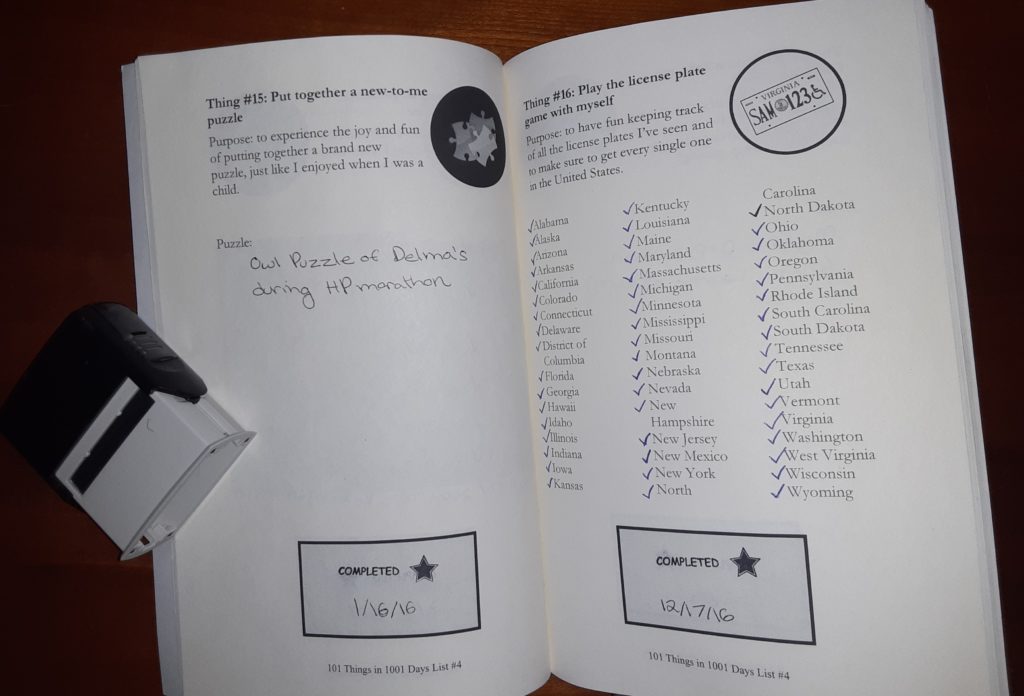 Thing #15: Put together a new-to-me
puzzle
Purpose: to experience the joy and fun
of putting together a brand new
puzzle, just like I enjoyed when I was a
child.
Puzzle:
Owl Puzzle of Delma's
during HP marathon
COMPLETED
1/16/16
101 Things in 1001 Days List #4
Thing #16: Play the license plate
game with myself
Purpose: to have fun keeping track
of all the license plates I've seen and
to make sure to get every single one
in the United States.
VIRGINIA
SAM 123
Alabama
Alaska
Arizona
Arkansas
California
Colorado
Connecticut
Delaware
District of
Columbia
Florida
Georgia
Hawaii
Idaho
Illinois
Indiana
Iowa
Kansas
Kentucky
Louisiana
Maine
Maryland
Massachusetts
Michigan
Minnesota
Mississippi
Missouri
Montana
Nebraska
Nevada
New
Hampshire
New Jersey
New Mexico
New York
North
Carolina
North Dakota
Ohio
Oklahoma
Oregon
Pennsylvania
Rhode Island
South Carolina
South Dakota
Tennessee
Texas
Utah
Vermont
Virginia
Washington
West Virginia
Wisconsin
Wyoming
COMPLETED
12/17/16
101 Things in 1001 Days List #4